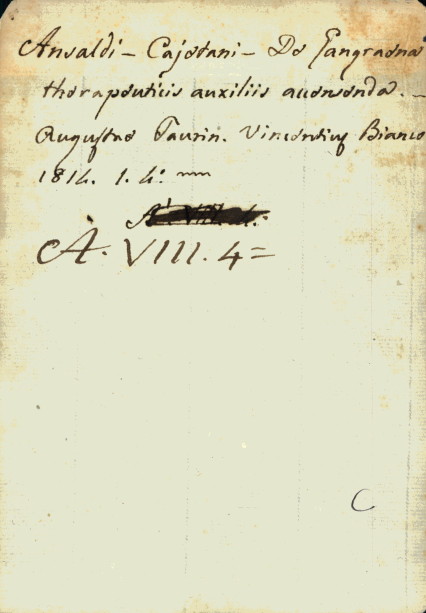 Ansaldi - Cajetani - De Gangraena
therapeuticis auxiliis arcenda. -
Augustae Taurin. Vincentius Bianco
1814. 1. 4º.
A. VIII. 4 =
C